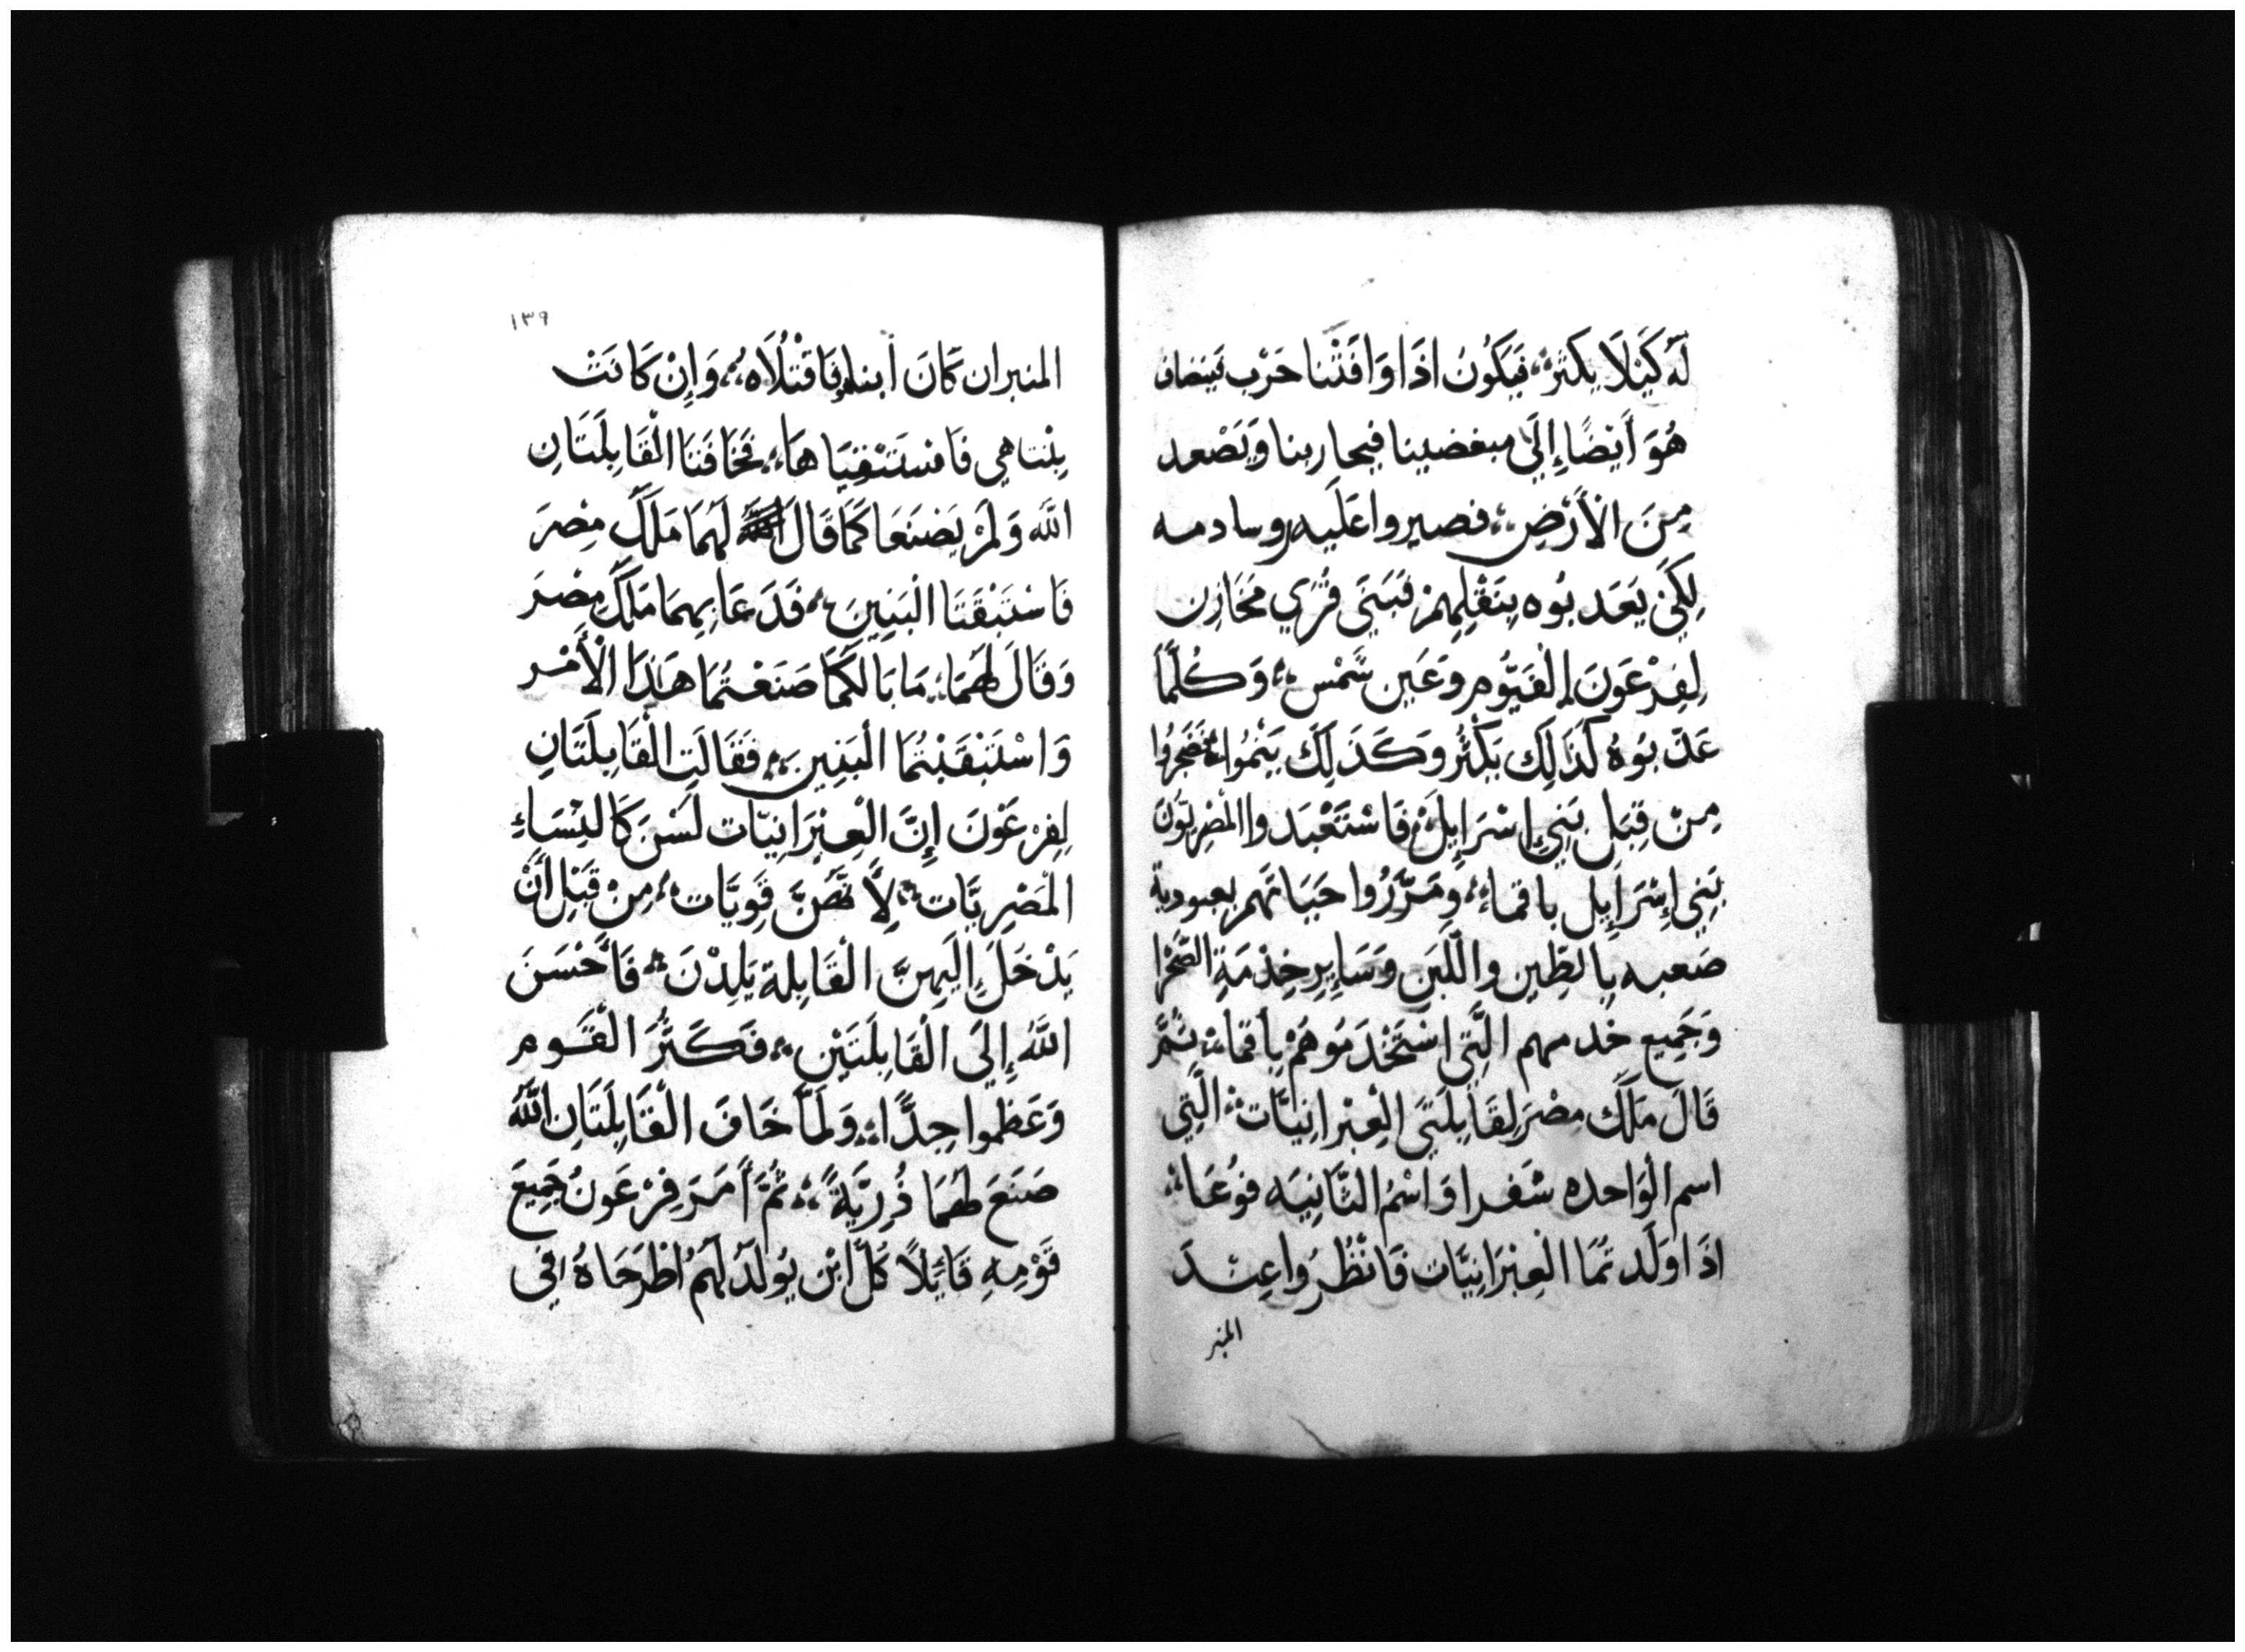 لَهُ كَيْلَا يكثرْ فَيَكُونُ اذَا وَافَتْنَا حَرْب فينضاف
هُوَ أَيْضًا إِلَى مبغضينا فيحاربنا وَيَصْعد
مِنَ الْأَرْضِ فصيروا عَلَيه روسا دمسه
لِكَيْ يَعَدبُوه بِثقلِهِمْ فَبَنَى قُرَي مَخَازِن
لِفِرْعَوْنَ الفَيُّوم وَعَين شَمْس وَكُلَّمَا
عَذَّبُوهُ كَذَالِكَ يَكْثُرُ وَكَذَلِكَ يَنْمُوا فَضَجِرُوا
مِنْ قِبَل بَنِي إِسْرَايِلَ فَاسْتَعْبَدوا المصْرِيُونَ
بَنِي إِسْرَايِل باقماء وَمَرَّرُوا حَيَاتَهم بعبودية
صَعبه بِالطِّين واللَّبَن وَسَايِرِ خِدْمَةِ الصَّحْرا
وَجَمِيع خدمهم الَّتِي اسْتَخْدَمُوهُمْ بِأقماء ثُمَّ
قَالَ مَلَكَ مِصْرَ لِقَابِلَتَي الْعِبْرَانِيَّات الَّتِي
اسم الْوَاحده شَفرا وَاسْمُ الثَّانِيَه فوُعَا
اذَا وَلَدتمَا الْعِبْرَانِيَّات فَانْظُرُوا عِنْدَ
المنبر
١٣٩
المنبر ان كَانَ أبنا فَاقْتُلَاه وَإِنْ كَانَتْ
بِنتا هي فَاسْتَبْقِيَاهَا فَخَافَتَا الْقَابِلَتَانِ
اللَّه وَلَمْ يَصْنَعَا كَمَا قَالَ لَهُمَا مَلَكَ مِصْرَ
فَاسْتَبْقَتَا الْبَنِينَ فَدَعَا بِهِمَا مَلَكَ مِصْرَ
وَقَالَ لَهُمَا مَا بَالكُمَا صَنَعْتُمَا هَذَا الْأَمْر
وَاسْتَبْقَيْتُمَا الْبَنِين فَقَالَتِ الْقَابِلَتَانِ
لِفِرْعَوْنَ إِنَّ الْعِبْرَانِيَّات لَسْنَ كَالنِسَاءِ
الْمَصْرِيَّات لِأَنَّهُنَّ قَوِيَّات مِنْ قَبْلِ أَنْ
يَدْخَلَ إِلَيهِنَّ الْقَابِلة يَلِدْنَ فَأَحْسَنَ
اللَّهُ إِلَي الْقَابِلَتَيْن فَكَثُرَ الْقَوم
وَعَظموا جِدًّا وَلَمَّا خَافَ الْقَابِلَتَانِ اللَّهَ
صَنَعَ لَهُمَا ذُرِيَّةً ثُمَّ أَمَرَ فِرْعَونُ جَمِيعَ
قَوْمِهِ قَايِلًا كُلّ ابْن يُولَدُ لَهُمْ اطْرَحَاهُ فِي